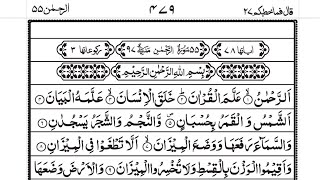 قال فما خطبكم ٢٧ ٤٧٩ الرحمٰن ٥٥
اٰیاتها ٧٨ ٥٥ سُوْرَةُ الرَّحْمٰنِ مَدَنِيَّةٌ ٩٧ رکوعاتها ٣
بِسْمِ اللهِ الرَّحْمٰنِ الرَّحِيْمِ
اَلرَّحْمٰنُ ۙ عَلَّمَ الْقُرْاٰنَ ؕ خَلَقَ الْاِنْسَانَ ۙ عَلَّمَهُ الْبَيَانَ
اَلشَّمْسُ وَ الْقَمَرُ بِحُسْبَانٍ ۪ وَّ النَّجْمُ وَ الشَّجَرُ يَسْجُدٰنِ
وَ السَّمَآءَ رَفَعَهَا وَ وَضَعَ الْمِيْزَانَ ۙ اَلَّا تَطْغَوْا فِي الْمِيْزَانِ
وَ اَقِيْمُوا الْوَزْنَ بِالْقِسْطِ وَ لَا تُخْسِرُوا الْمِيْزَانَ وَ الْاَرْضَ وَضَعَهَا